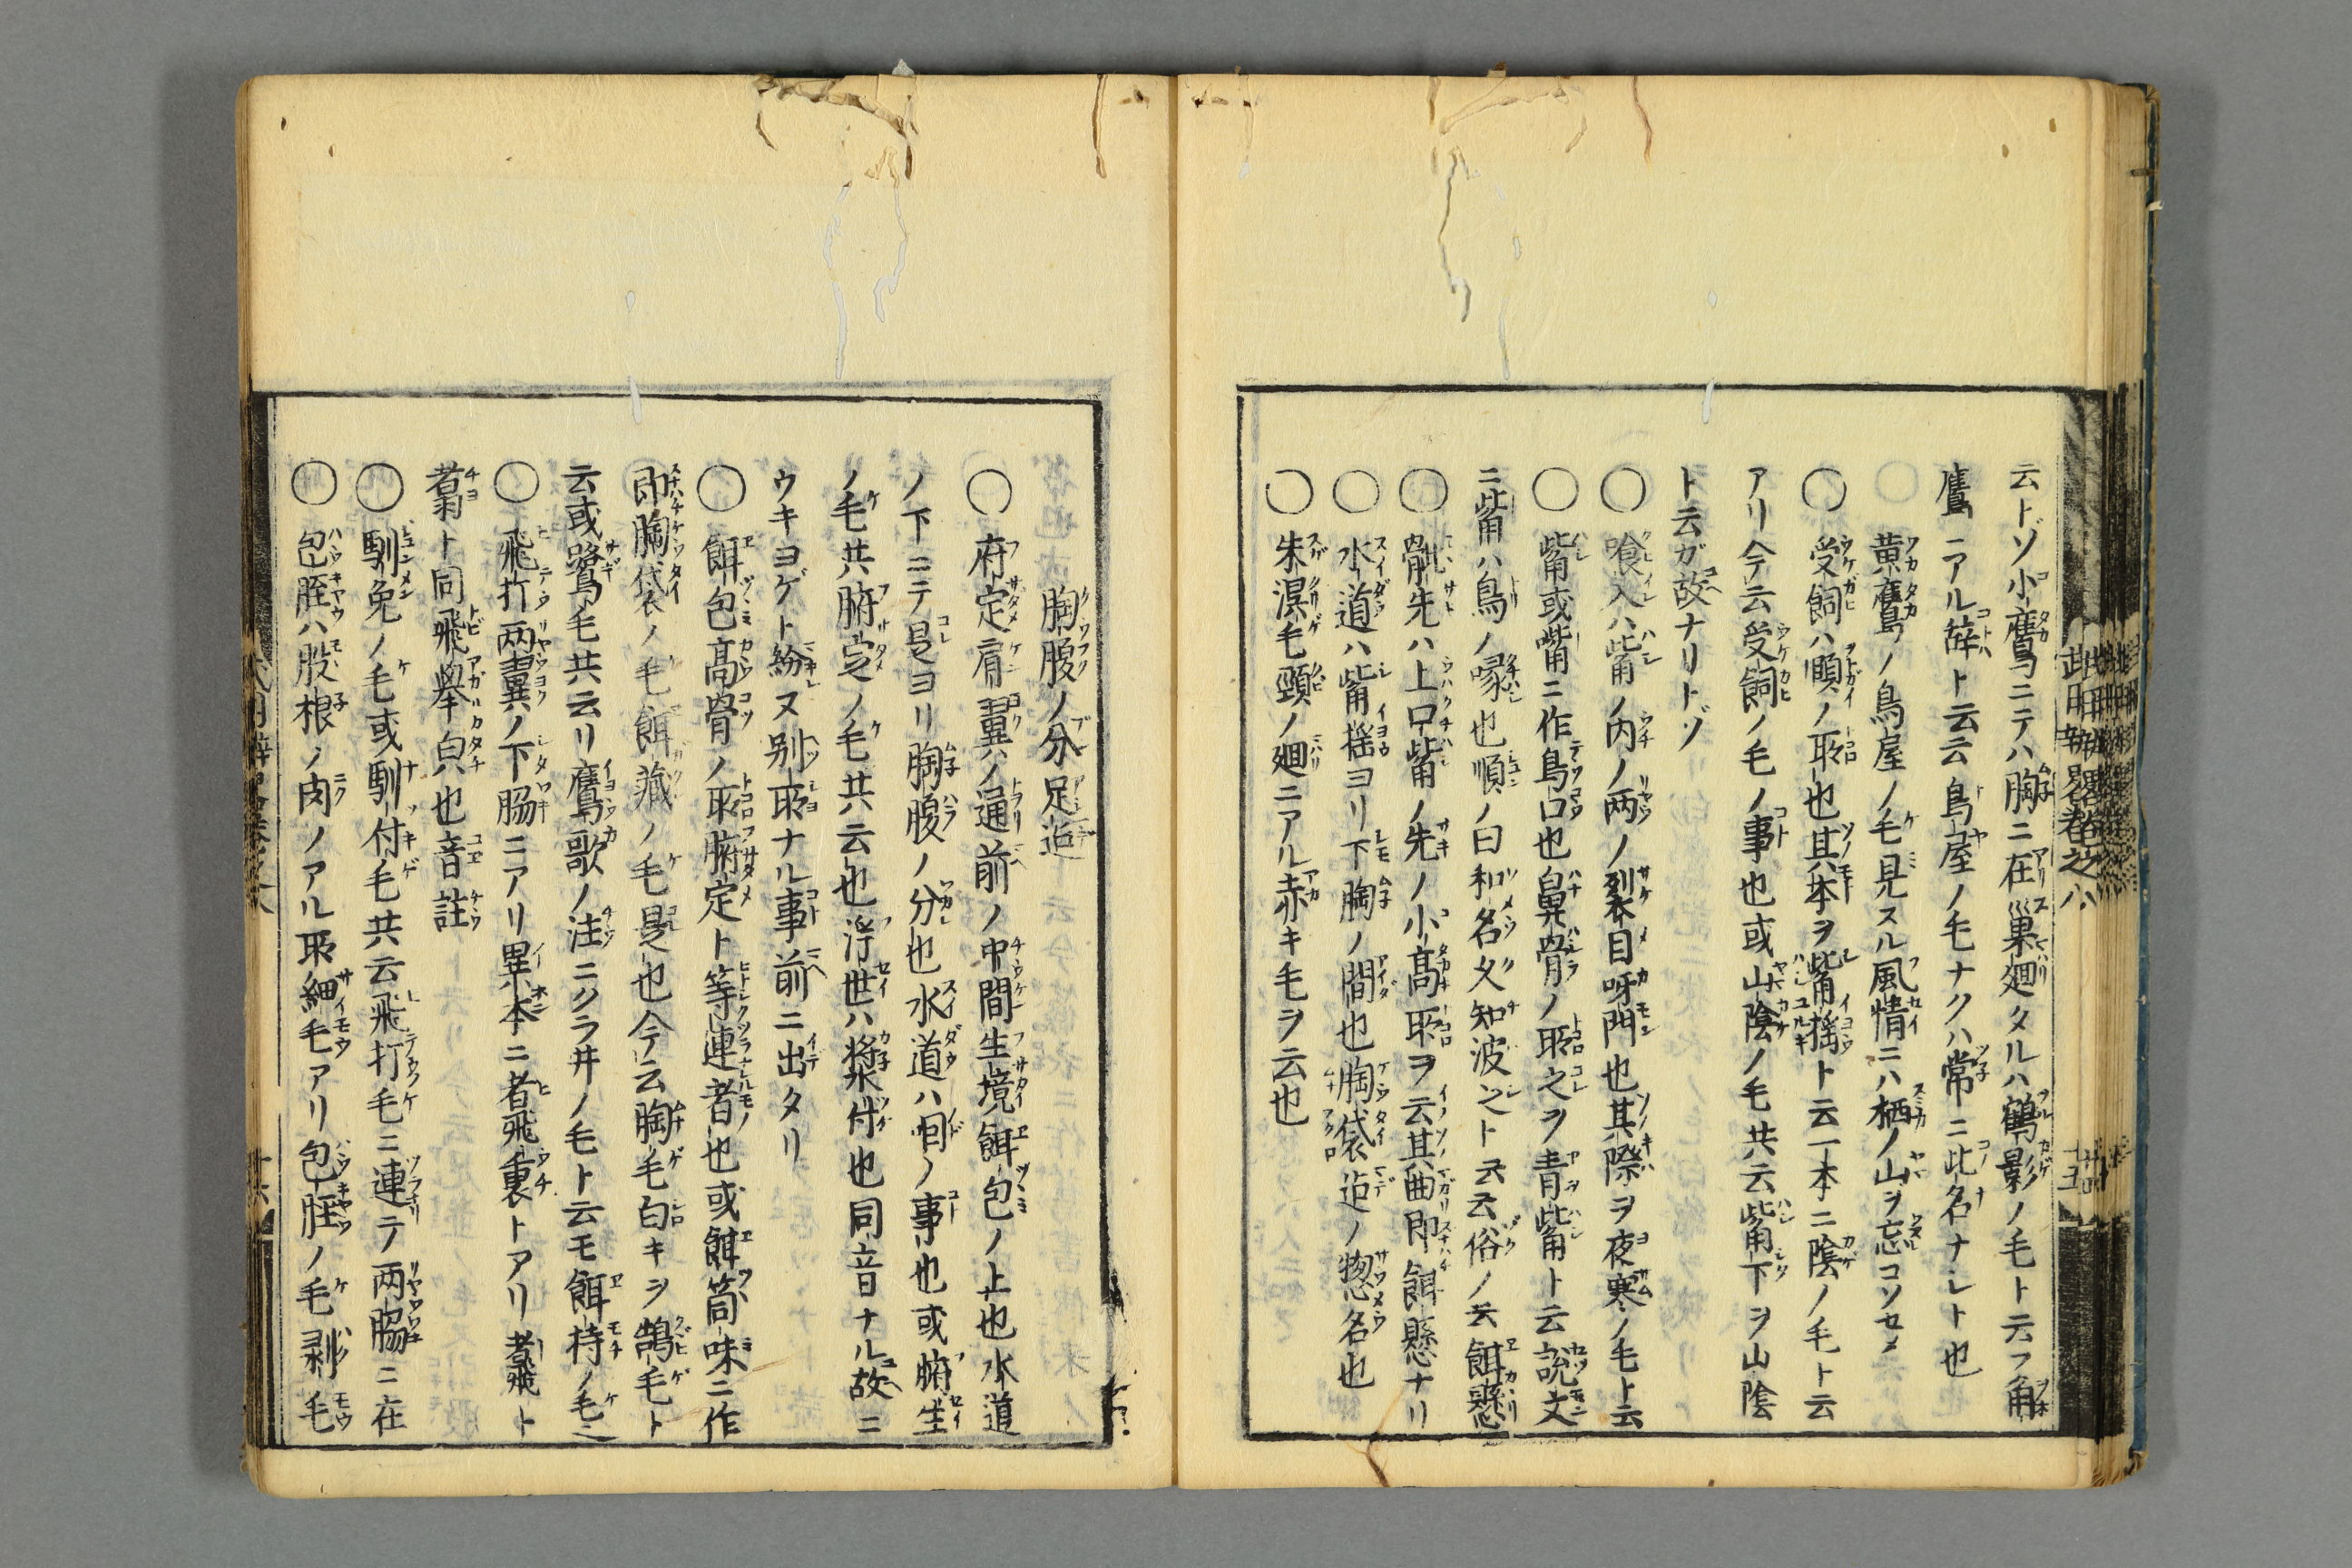 云トゾ小鷹ニテハ胸ニ在巣廻タルハ鶴影ノ毛ト云フ角
鷹ニアル辞ト云云鳥屋ノ毛ナクハ常ニ此名ナシト也
黄鷹ノ鳥屋ノ毛見スル風情ニハ栖ノ山ヲ忘コソセメ
〇受飼ハ頤ノ所也其本ヲ觜揺ト云一本ニ陰ノ毛ト云
アリ今云受飼ノ毛ノ事也或山陰ノ毛共云觜下ヲ山陰
ト云ガ故ナリトゾ
〇喰入ハ觜ノ内ノ両ノ裂目呀門也其際ヲ夜寒ノ毛ト云
〇觜或嘴ニ作鳥口也鼻骨ノ所之ヲ青觜ト云説文
ニ觜ハ鳥ノ喙也順ノ曰和名久知波之ト云云俗ノ云餌懸
〇先ハ上口觜ノ先ノ小高所ヲ云其曲即餌懸ナリ
〇水道ハ觜揺ヨリ下胸ノ間也胸袋迠ノ惣名也
〇朱漯毛頸ノ廻ニアル赤キ毛ヲ云也
胸腹ノ分足迠
〇府定肩翼ノ通前ノ中間生境餌包ノ上也水道
ノ下ニテ是ヨリ胸腹ノ分也水道ハ咽ノ事也或腑生
ノ毛共腑定ノ毛共云也浮世ハ將付也同音ナル故ニ
ウキヨゲト紛ヌ別所ナル事前ニ出タリ
〇餌包高骨ノ所腑定ト等連者也或餌筒味ニ作
即胸袋ノ毛餌蔵ノ毛是也今云胸毛白キヲ鵠毛ト
云或鷺毛共云リ鷹歌ノ注ニクラ井ノ毛ト云モ餌持ノ毛之
〇飛打両翼ノ下脇ニアリ異本ニ者飛裏トアリ翥飛ト
翥ト同飛挙皃也音註
〇馴免ノ毛或馴付毛共云飛打毛ニ連テ両脇ニ在
〇包脛ハ股根ノ肉ノアル所細毛アリ包脛ノ毛剥毛